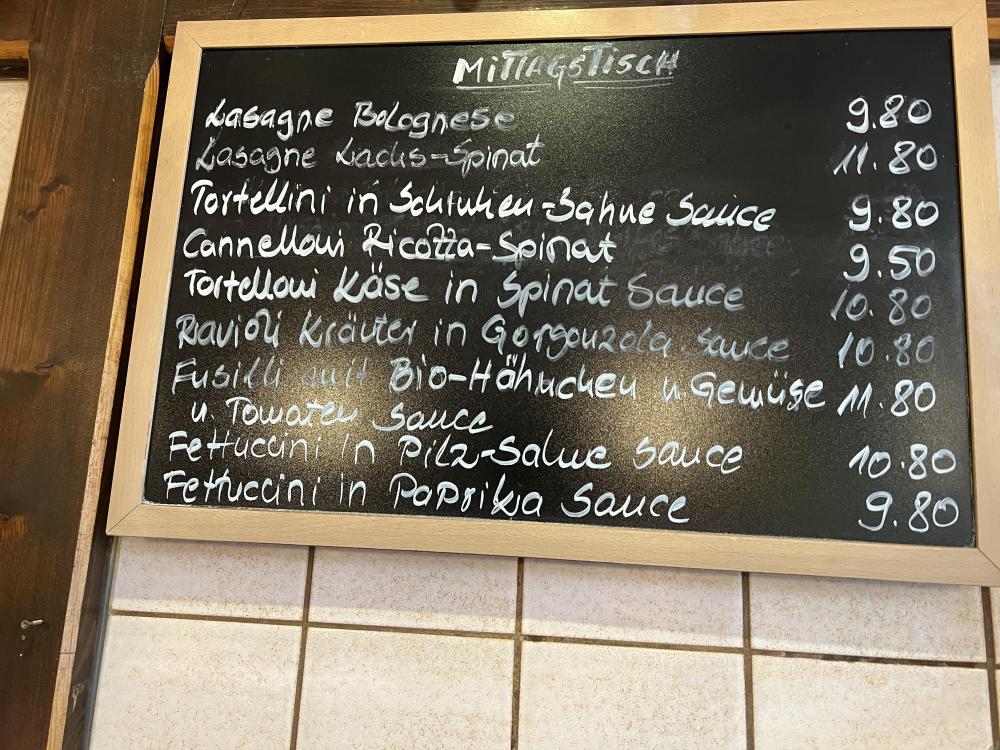 MiTTAGSTiSCH
Lasagne Bolognese 9.80
Lasagne Lachs-Spinat 11.80
Tortellini in Schinken-Sahne Sauce 9.80
Cannelloni Ricotta-Spinat 9.50
Tortelloni Käse in Spinat Sauce 10.80
Ravioli Kräuter in Gorgonzola Sauce 10.80
Fusilli mit Bio-Hähnchen u. Gemüse 11.80
u. Tomaten Sauce
Fettuccini in Pilz-Sahne Sauce 10.80
Fettuccini in Paprika Sauce 9.80